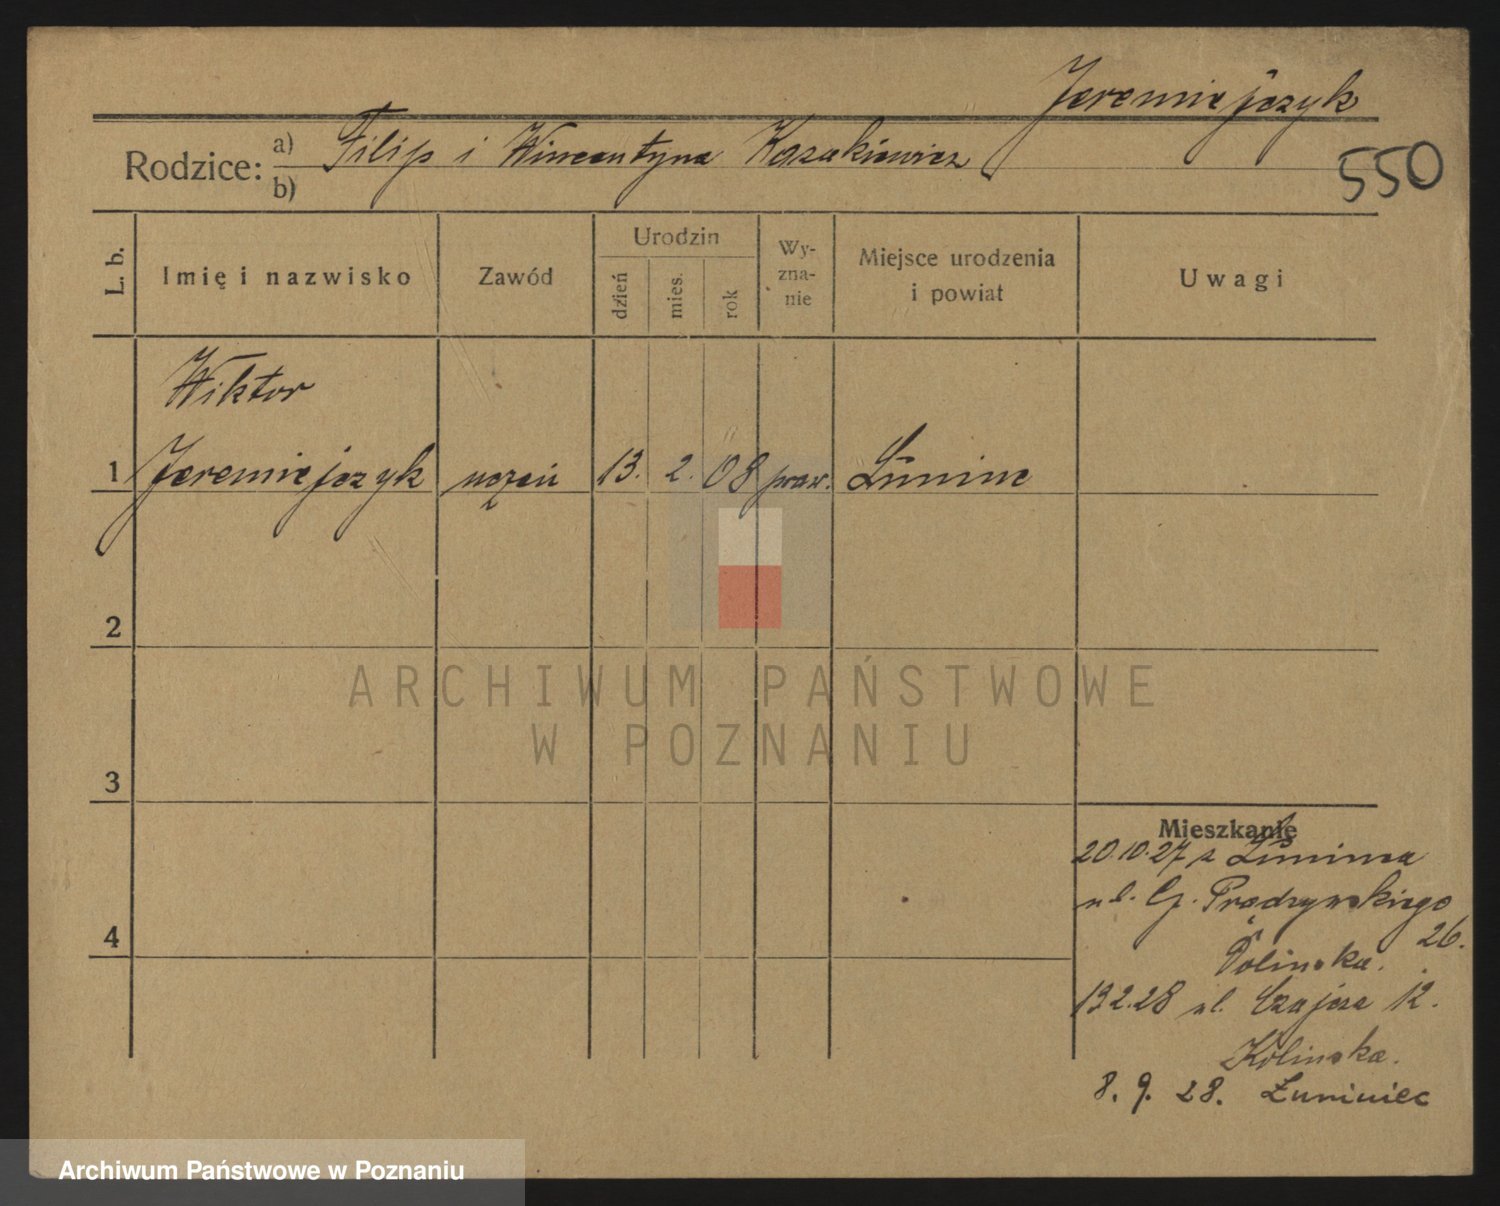 Jeremiejczyk
Rodzice: a) Filip i Wincentyna Kazakiewicz
b)
550
L. b.
Imię i nazwisko
Zawód
Urodzin
dzień
mies.
rok
Wy-
zna-
nie
Miejsce urodzenia
i powiat
Uwagi
Wiktor
1 Jeremiejczyk uczeń 13. 2. 08 praw. Łuninc
2
ARCHIWUM PAŃSTWOWE
W POZNANIU
3
Mieszkanie
20.10.27 z Łuninca
ul. G. Prądzyńskiego
26.
4
Polinska.
13.2.28 ul. Czajcza 12.
Kolinska.
8. 9. 28. Łuniniec
Archiwum Państwowe w Poznaniu